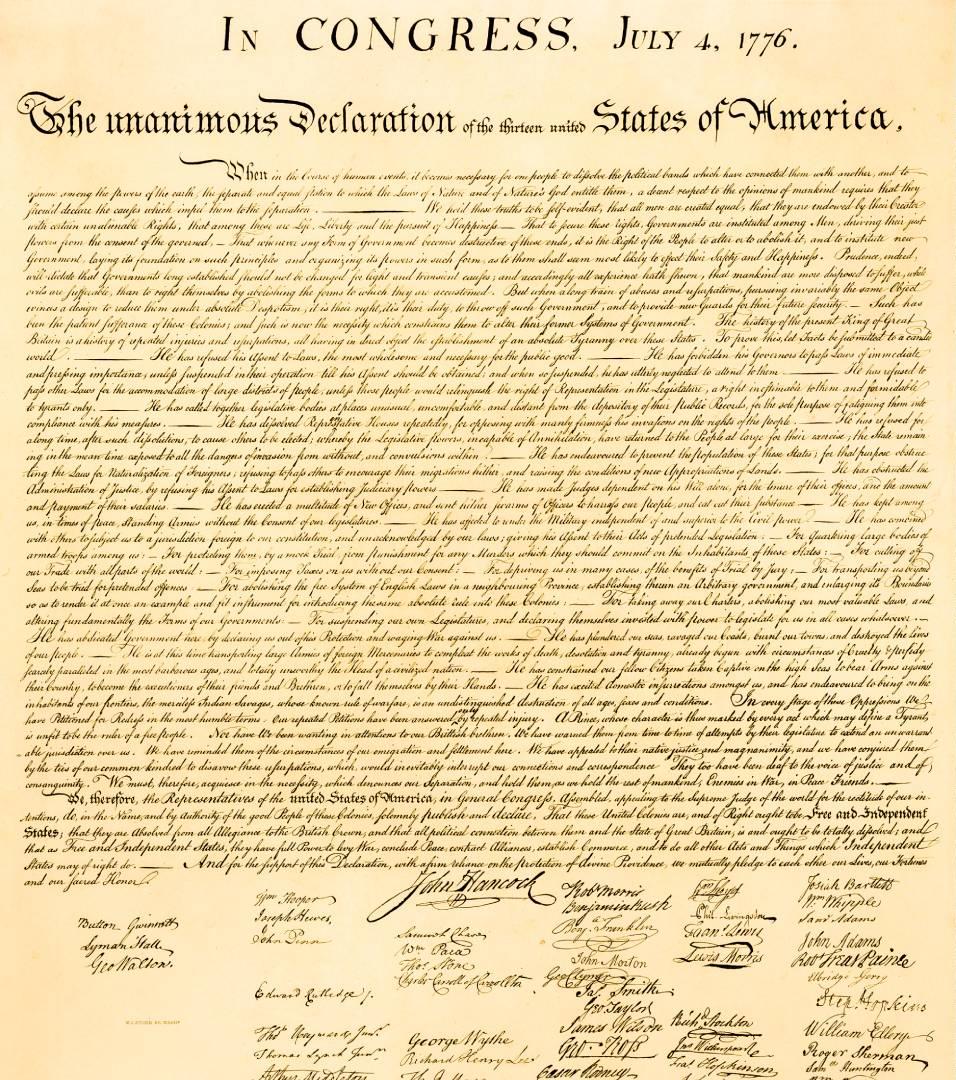 IN CONGRESS, JULY 4, 1776.
The unanimous Declaration of the thirteen united States of America,
When in the Course of human events, it becomes necessary for one people to dissolve the political bands which have connected them with another, and to
assume among the powers of the earth, the separate and equal station to which the Laws of Nature and of Nature's God entitle them, a decent respect to the opinions of mankind requires that they
should declare the causes which impel them to the separation. ——— We hold these truths to be self-evident, that all men are created equal, that they are endowed by their Creator
with certain unalienable Rights, that among these are Life, Liberty and the pursuit of Happiness. — That to secure these rights, Governments are instituted among Men, deriving their just
powers from the consent of the governed, — That whenever any Form of Government becomes destructive of these ends, it is the Right of the People to alter or to abolish it, and to institute new
Government, laying its foundation on such principles and organizing its powers in such form, as to them shall seem most likely to effect their Safety and Happiness. Prudence, indeed,
will dictate that Governments long established should not be changed for light and transient causes; and accordingly all experience hath shewn, that mankind are more disposed to suffer, while
evils are sufferable, than to right themselves by abolishing the forms to which they are accustomed. But when a long train of abuses and usurpations, pursuing invariably the same Object
evinces a design to reduce them under absolute Despotism, it is their right, it is their duty, to throw off such Government, and to provide new Guards for their future security. — Such has
been the patient sufferance of these Colonies; and such is now the necessity which constrains them to alter their former Systems of Government. The history of the present King of Great
Britain is a history of repeated injuries and usurpations, all having in direct object the establishment of an absolute Tyranny over these States. To prove this, let Facts be submitted to a candid
world. ——— He has refused his Assent to Laws, the most wholesome and necessary for the public good. ——— He has forbidden his Governors to pass Laws of immediate
and pressing importance, unless suspended in their operation till his Assent should be obtained; and when so suspended, he has utterly neglected to attend to them. ——— He has refused to
pass other Laws for the accommodation of large districts of people, unless those people would relinquish the right of Representation in the Legislature, a right inestimable to them and formidable
to tyrants only. ——— He has called together legislative bodies at places unusual, uncomfortable, and distant from the depository of their Public Records, for the sole purpose of fatiguing them into
compliance with his measures. ——— He has dissolved Representative Houses repeatedly, for opposing with manly firmness his invasions on the rights of the people. ——— He has refused for
a long time, after such dissolutions, to cause others to be elected; whereby the Legislative powers, incapable of Annihilation, have returned to the People at large for their exercise; the State remain
ing in the mean time exposed to all the dangers of invasion from without, and convulsions within. ——— He has endeavoured to prevent the population of these States; for that purpose obstruc
ting the Laws for Naturalization of Foreigners; refusing to pass others to encourage their migrations hither, and raising the conditions of new Appropriations of Lands. ——— He has obstructed the
Administration of Justice, by refusing his Assent to Laws for establishing Judiciary powers. ——— He has made Judges dependent on his Will alone, for the tenure of their offices, and the amount
and payment of their salaries. ——— He has erected a multitude of New Offices, and sent hither swarms of Officers to harrass our People, and eat out their substance. ——— He has kept among
us, in times of peace, Standing Armies without the Consent of our legislatures. ——— He has affected to render the Military independent of and superior to the Civil power. ——— He has combined
with others to subject us to a jurisdiction foreign to our constitution, and unacknowledged by our laws; giving his Assent to their Acts of pretended Legislation: — For Quartering large bodies of
armed troops among us: — For protecting them, by a mock Trial, from punishment for any Murders which they should commit on the Inhabitants of these States: — For cutting off
our Trade with all parts of the world: — For imposing Taxes on us without our Consent: — For depriving us in many cases, of the benefits of Trial by Jury: — For transporting us beyond
Seas to be tried for pretended offences — For abolishing the free System of English Laws in a neighbouring Province, establishing therein an Arbitrary government, and enlarging its Boundaries
so as to render it at once an example and fit instrument for introducing the same absolute rule into these Colonies: — For taking away our Charters, abolishing our most valuable Laws, and
altering fundamentally the Forms of our Governments: — For suspending our own Legislatures, and declaring themselves invested with power to legislate for us in all cases whatsoever. —
He has abdicated Government here, by declaring us out of his Protection and waging War against us. — He has plundered our seas, ravaged our Coasts, burnt our towns, and destroyed the lives
of our people. — He is at this time transporting large Armies of foreign Mercenaries to compleat the works of death, desolation and tyranny, already begun with circumstances of Cruelty & perfidy
scarcely paralleled in the most barbarous ages, and totally unworthy the Head of a civilized nation. — He has constrained our fellow Citizens taken Captive on the high Seas to bear Arms against
their Country, to become the executioners of their friends and Brethren, or to fall themselves by their Hands. — He has excited domestic insurrections amongst us, and has endeavoured to bring on the
inhabitants of our frontiers, the merciless Indian Savages, whose known rule of warfare, is an undistinguished destruction of all ages, sexes and conditions. In every stage of these Oppressions We
have Petitioned for Redress in the most humble terms: Our repeated Petitions have been answered only by repeated injury. A Prince, whose character is thus marked by every act which may define a Tyrant,
is unfit to be the ruler of a free people. Nor have We been wanting in attentions to our Brittish brethren. We have warned them from time to time of attempts by their legislature to extend an unwarrant
able jurisdiction over us. We have reminded them of the circumstances of our emigration and settlement here. We have appealed to their native justice and magnanimity, and we have conjured them
by the ties of our common kindred to disavow these usurpations, which, would inevitably interrupt our connections and correspondence. They too have been deaf to the voice of justice and of
consanguinity. We must, therefore, acquiesce in the necessity, which denounces our Separation, and hold them, as we hold the rest of mankind, Enemies in War, in Peace Friends. —
We, therefore, the Representatives of the united States of America, in General Congress, Assembled, appealing to the Supreme Judge of the world for the rectitude of our in-
tentions, do, in the Name, and by Authority of the good People of these Colonies, solemnly publish and declare, That these United Colonies are, and of Right ought to be Free and Independent
States; that they are Absolved from all Allegiance to the British Crown, and that all political connection between them and the State of Great Britain, is and ought to be totally dissolved; and
that as Free and Independent States, they have full Power to levy War, conclude Peace, contract Alliances, establish Commerce, and to do all other Acts and Things which Independent
States may of right do. — And for the support of this Declaration, with a firm reliance on the protection of divine Providence, we mutually pledge to each other our Lives, our Fortunes
and our sacred Honor.
Button Gwinnett
Lyman Hall
Geo Walton.
Wm Hooper
Joseph Hewes,
John Penn
Edward Rutledge /.
Thos Heyward Junr.
Thomas Lynch Junr.
Arthur Middleton
John Hancock
Samuel Chase
Wm Paca
Thos Stone
Charles Carroll of Carrollton
George Wythe
Richard Henry Lee
Robt Morris
Benjamin Rush
Benj. Franklin
John Morton
Geo Clymer
Jas. Smith
Geo Taylor
James Wilson
Geo. Ross
Caesar Rodney
Wm Floyd
Phil. Livingston
Frans. Lewis
Lewis Morris
Richd Stockton
Jno Witherspoon
Fras Hopkinson
Josiah Bartlett
Wm Whipple
Saml Adams
John Adams
Robt Treat Paine
Elbridge Gerry
Step. Hopkins
William Ellery
Roger Sherman
Saml Huntington